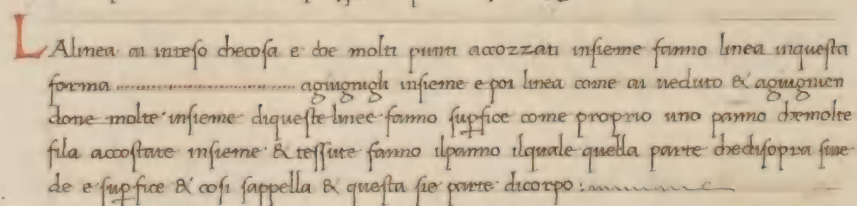 LAlinea ai inteso checosa e che molti punti accozzati insieme fanno linea inquesta
forma ........................ agiugnigli insieme e poi linea come ai ueduto & agiugnien
done molte insieme diqueste linee fanno supfice come proprio uno panno chemolte
fila accostate insieme & tessute fanno ilpanno ilquale quella parte chedisopra siue
de e supfice & cosi sappella & questa sie parte dicorpo :